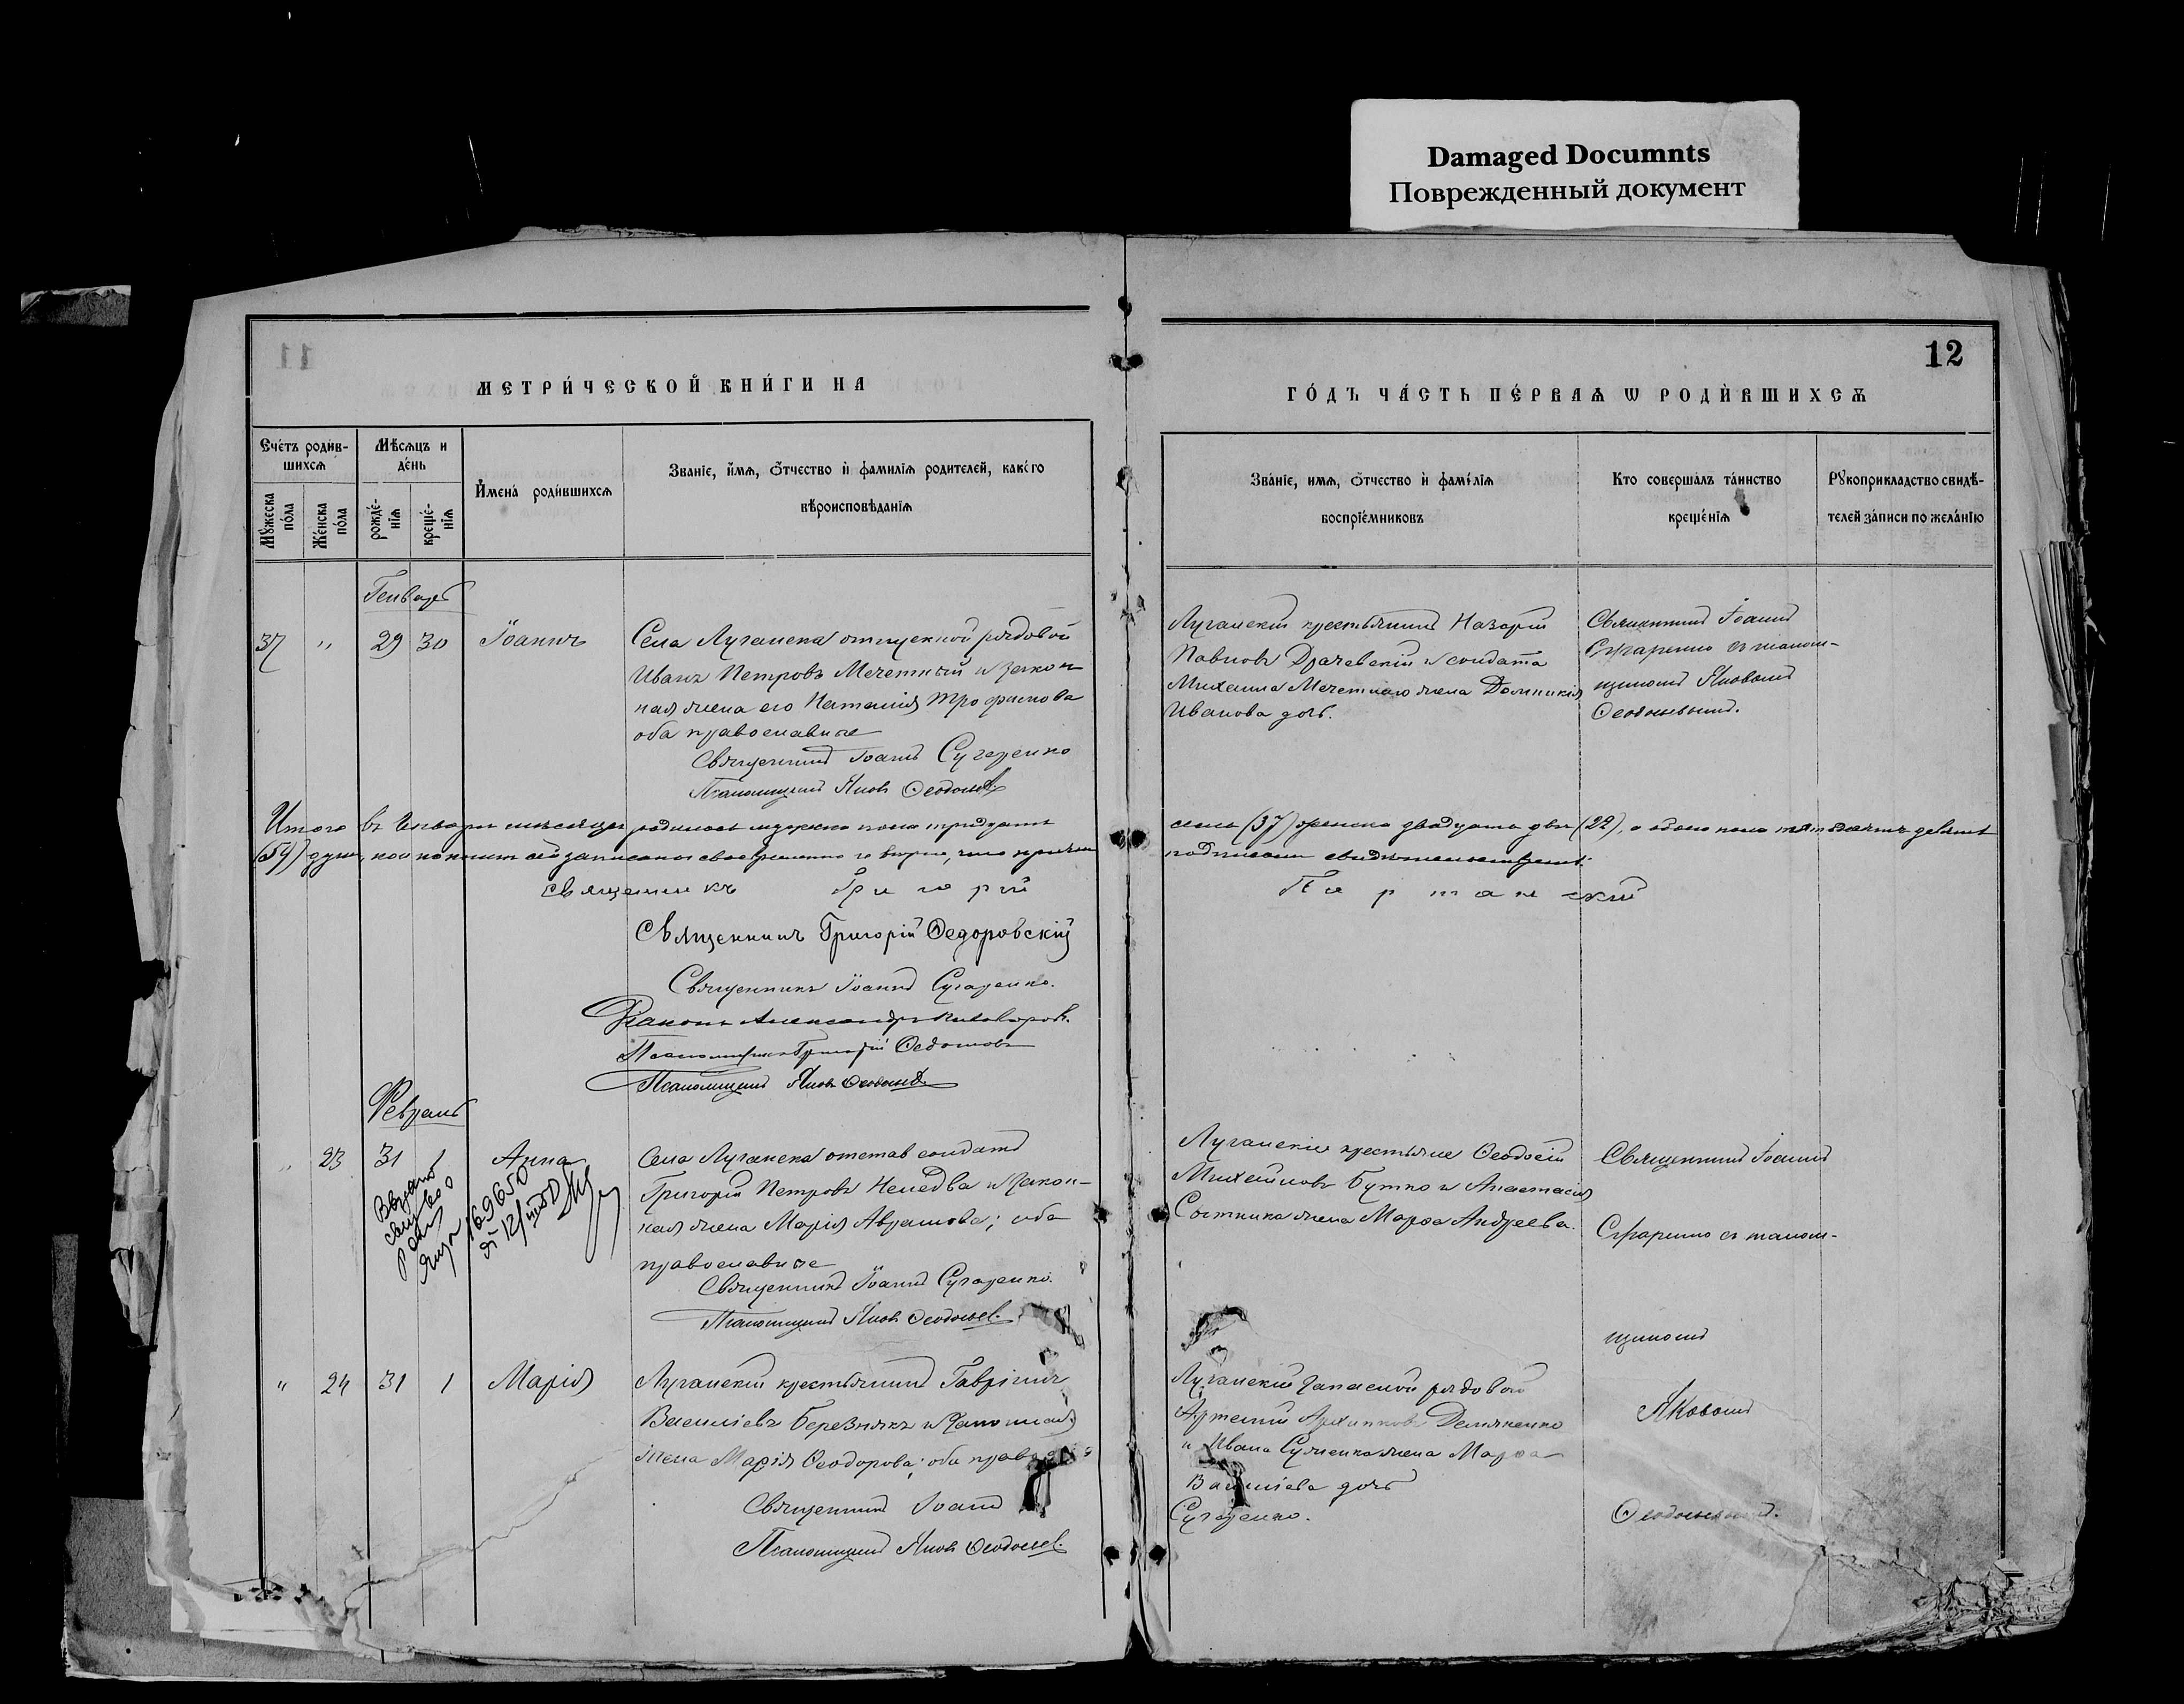 Damaged Documnts
Поврежденный документ
11
12
МЕТРИ́ЧЕСКОЙ КНИ́ГИ НА
ГО́ДЪ ЧА́СТЬ ПЕ́РВАѦ Ѡ РОДИ́ВШИХСѦ
Сче́тъ роди́в-
шихсѧ
Мѣ́сѧцъ и
де́нь
Мꙋ́жеска
по́ла
Же́нска
по́ла
рожде́-
нїѧ
креще́-
нїѧ
И҆мена́ роди́вшихсѧ
Зва́нїе, и҆́мѧ, ѻ҆́тчество и҆ фами́лїѧ роди́телей, како́го
вѣроисповѣ́данїѧ
Зва́нїе, имѧ, ѻ҆́тчество и҆ фами́лїѧ
воспрїе́мниковъ
Кто соверша́лъ та́инство
креще́нїѧ
Рꙋкоприкла́дство свидѣ́-
телей за́писи по жела́нїю
Генварь
37 " 29 30 Іоаннъ
Села Луганска отпускной рядовой
Иванъ Петровъ Мечетный и закон
ная жена его Наталія Трофимова
оба православные
Священникъ Іоаннъ Сугаренко
Псаломщикъ Яковъ Ѳеодосьев
Луганскій крестьянинъ Назарій
Павловъ Драчевскій и солдата
Михаила Мечетнаго жена Домникія
Иванова дочь.
Священникъ Іоаннъ
Сугаренко съ псалом-
щикомъ Яковомъ
Ѳеодосьевымъ.
Итого въ Январѣ мѣсяцѣ родилось мужеска пола тридцать
семь (37) женска двадцать два (22), а обоего пола пятьдесятъ девять
(59) душ, кои записаны своевременно и вѣрно, что
подписомъ свидѣтельствуемъ:
Священникъ Григорій
Священникъ Григорій Ѳедоровскій
Священникъ Іоаннъ Сугаренко.
Діаконъ Александръ
Псаломщикъ Григорій
Псаломщикъ Яковъ Ѳеодосьев.
Февраль
" 23 31 Анна
169650
12/
Села Луганска отстав солдатъ
Григорій Петровъ и закон-
ная жена Марія Аврамова; оба
православные
Священникъ Іоаннъ Сугаренко.
Псаломщикъ Яковъ Ѳеодосьев.
Луганскіе крестьяне Ѳеодосій
Михайловъ Бутко и Анастасія
Сотника жена Марѳа Андреева.
Священникъ Іоаннъ
Сугаренко съ псалом-
щикомъ
Яковомъ
Ѳеодосьевымъ.
" 24 31 1 Марія
Луганскій крестьянинъ Гавріилъ
Васильевъ Березнякъ и законная
жена Марія Ѳеодорова; оба прав
Священникъ Іоаннъ
Псаломщикъ Яковъ Ѳеодосьев.
Луганскій запасной рядовой
Артемій Архиповъ Демяненко
и Ивана жена Марѳа
Васильева дочь
Сугаренко.